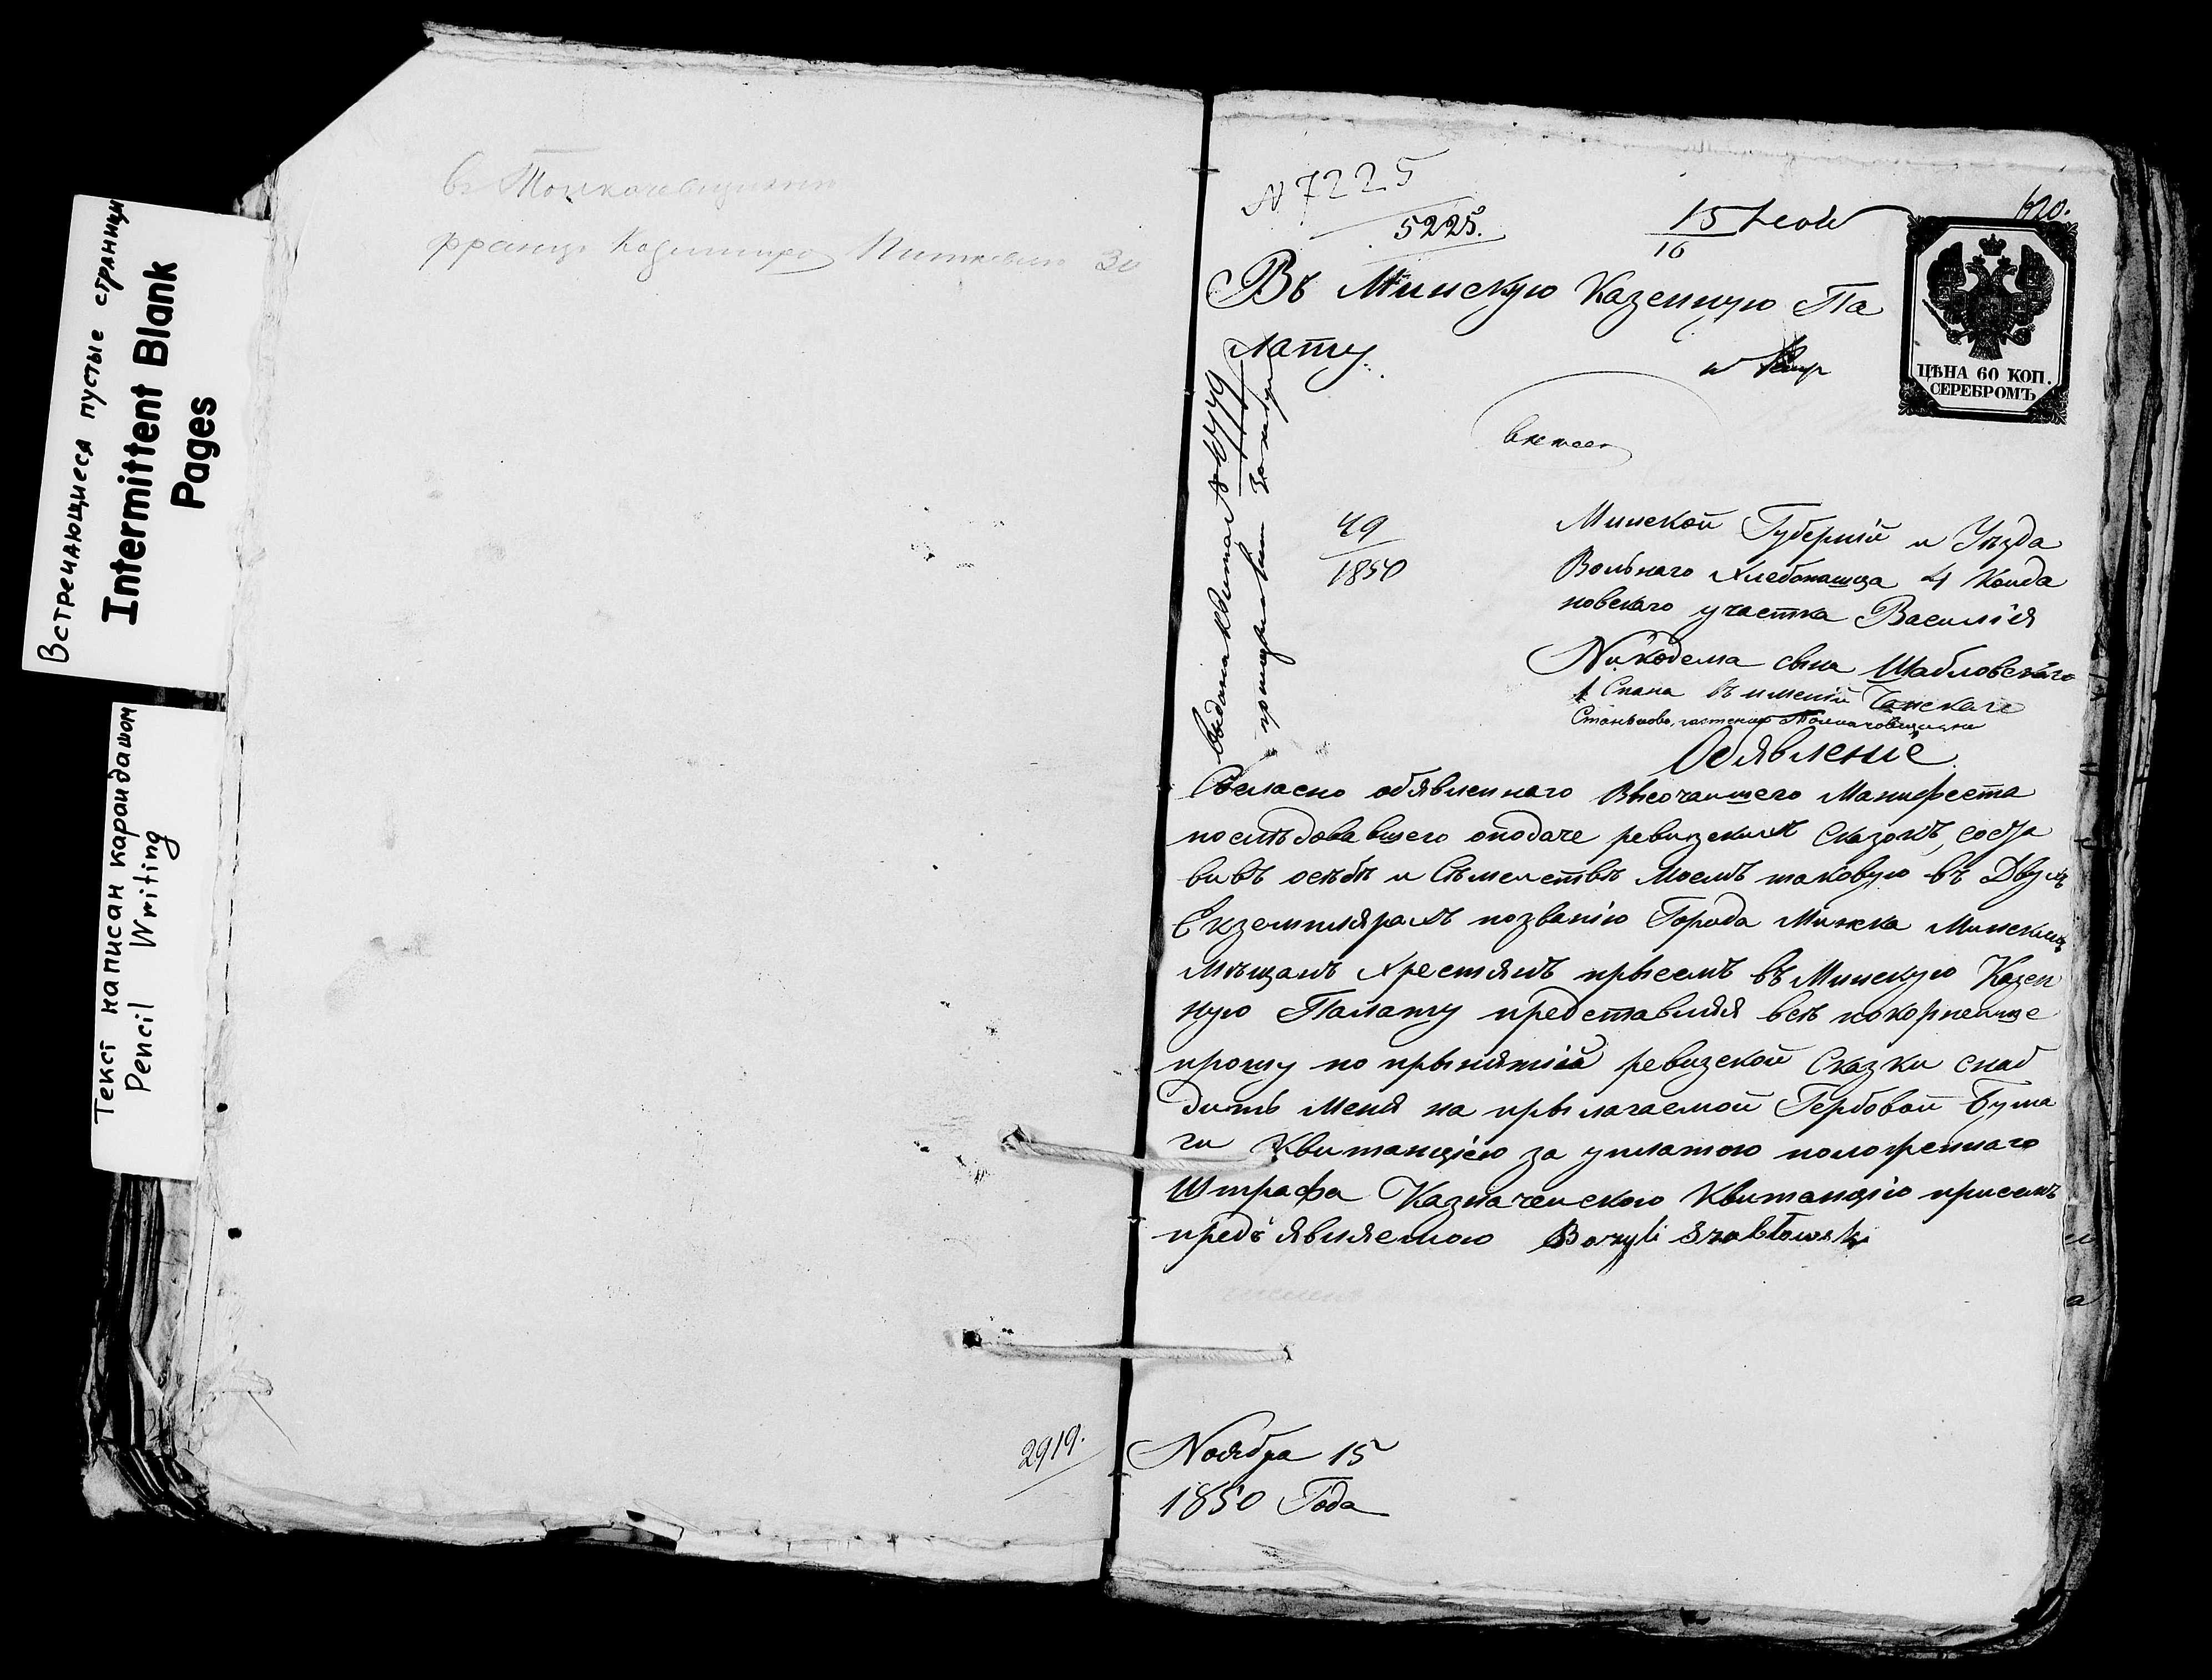 Встречающиеся пустые страницы
Intermittent Blank
Pages
Текст написан карандашом
Pencil Writing
въ
Францъ Казимиръ 30
2919.
N 7225
5225.
15 Ноя
16
620.
ЦѢНА 60 КОП.
СЕРЕБРОМЪ
Въ Минскую Казенную Па
лату.
49
1850
Минской Губерніи и Уѣзда
Вольнаго Хлебопашца 4 Койда
новскаго участка Василія
Никодема сына Шабловскаго
1 Стана въ имѣніи
Станьково,
Объявленіе
Согласно объявленнаго Высочаишего Манифеста
послѣдовавшего оподаче ревизскихъ Сказокъ, соста
вивъ осебѣ и Сѣмействѣ моемъ таковую въ Двухъ
Екземплярахъ позванію Города Минска Минскихъ
Мѣщанъ Хрестянъ прысемъ въ Минскую Казен
ную Палату представляя всѣ покорнеише
прошу по прынятіи ревизской Сказки снаб
дить меня на прылагаемой Гербовой Бума
ги Квитанціею за уплатою положеннаго
Штрафа Казначейскою Квитанціею присемъ
предъявляемою Bazyli Szabłowski
Ноября 15
1850 Года
выдана квитан